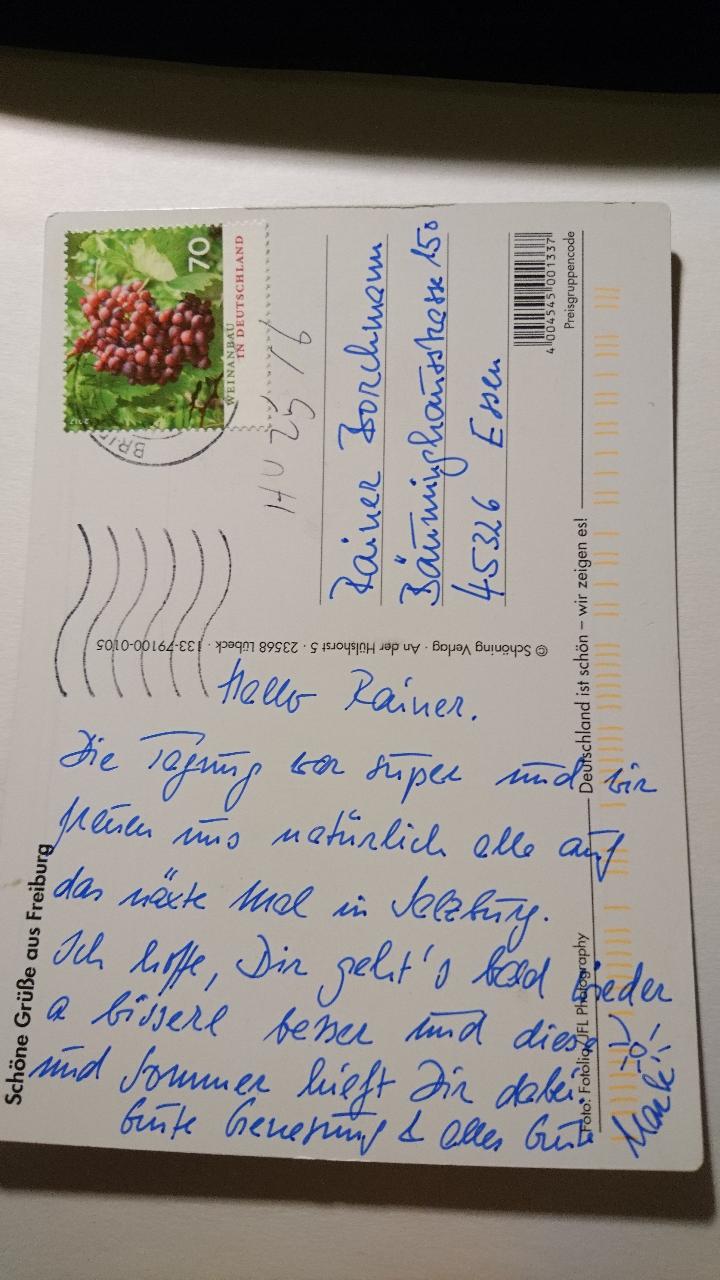 Schöne Grüße aus Freiburg
Hallo Rainer.
Die Tagung war super und wir
freuen uns natürlich alle auf
das näxte Mal in Salzburg.
Ich hoffe, Dir geht's bald wieder
a bisserl besser und diese
und Sommer hilft Dir dabei.
Gute Genesung & alles Gute
© Schöning Verlag · An der Hülshorst 5 · 23568 Lübeck · 133-79100-0105
70
WEINANBAU
IN DEUTSCHLAND
2017
BRIE
HU 25/6
Rainer Borchmann
Bäuminghausstrasse 150
45326 Essen
4 004545 001337
Preisgruppencode
Foto: Fotolia/JFL Photography
Deutschland ist schön – wir zeigen es!